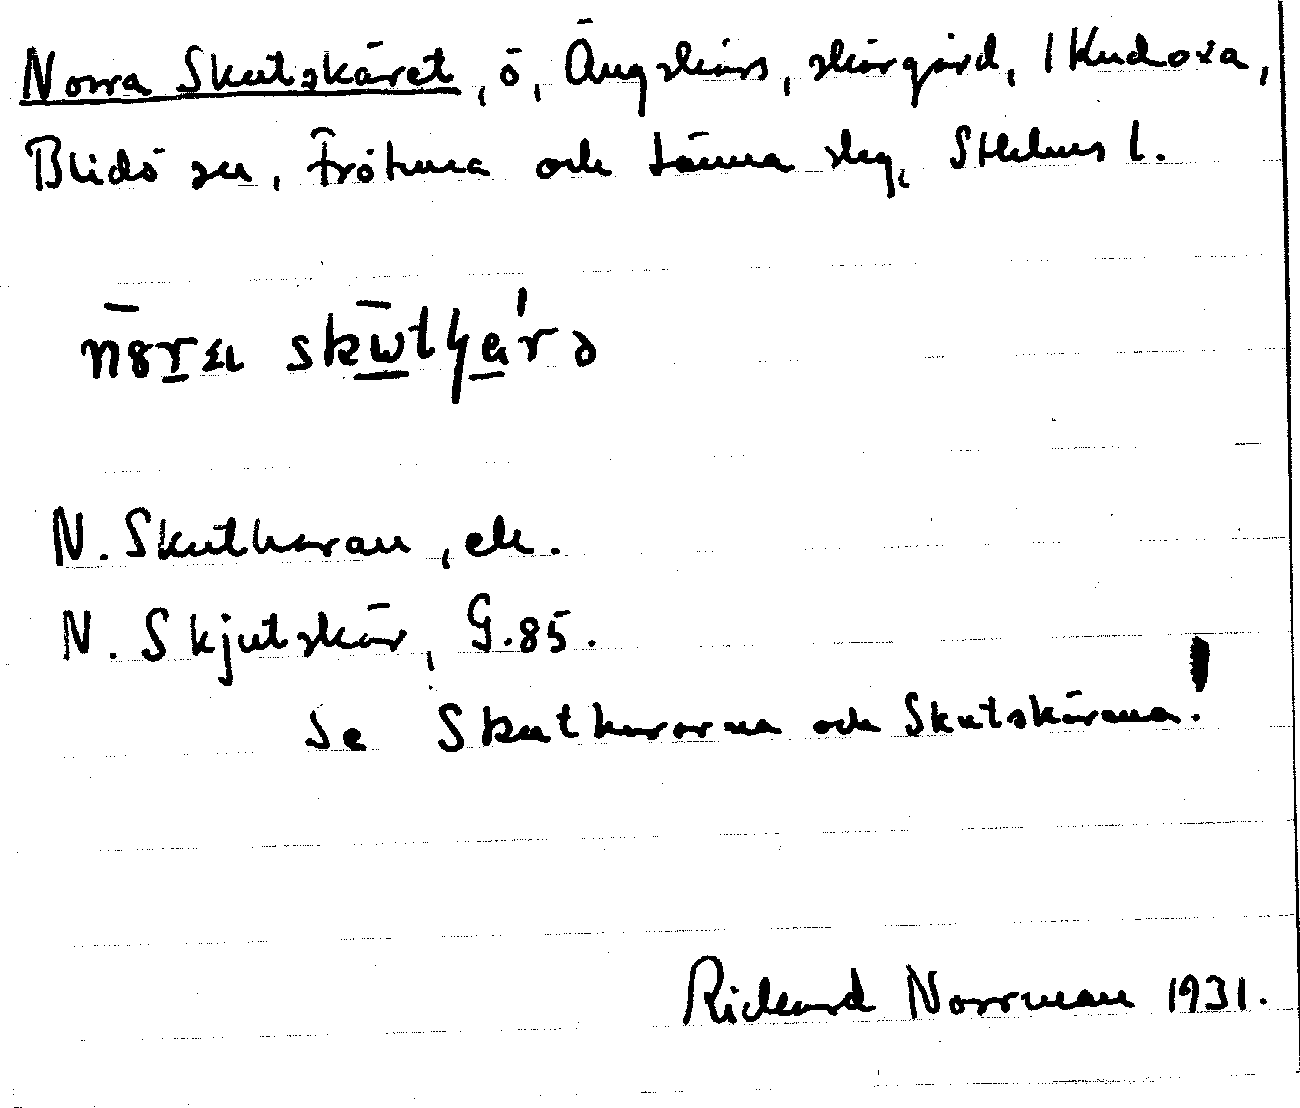 Norra Skutskäret, ö, Ängskärs, skärgård, 1 Kudoxa,
Blidö sn, Frötuna och Länna skg, Sthlms l.
N. Skutharan, ek.
N. Skjutskär, G. 85.
Se Skuthararna och Skutskärena!
Rickard Norrman 1931.